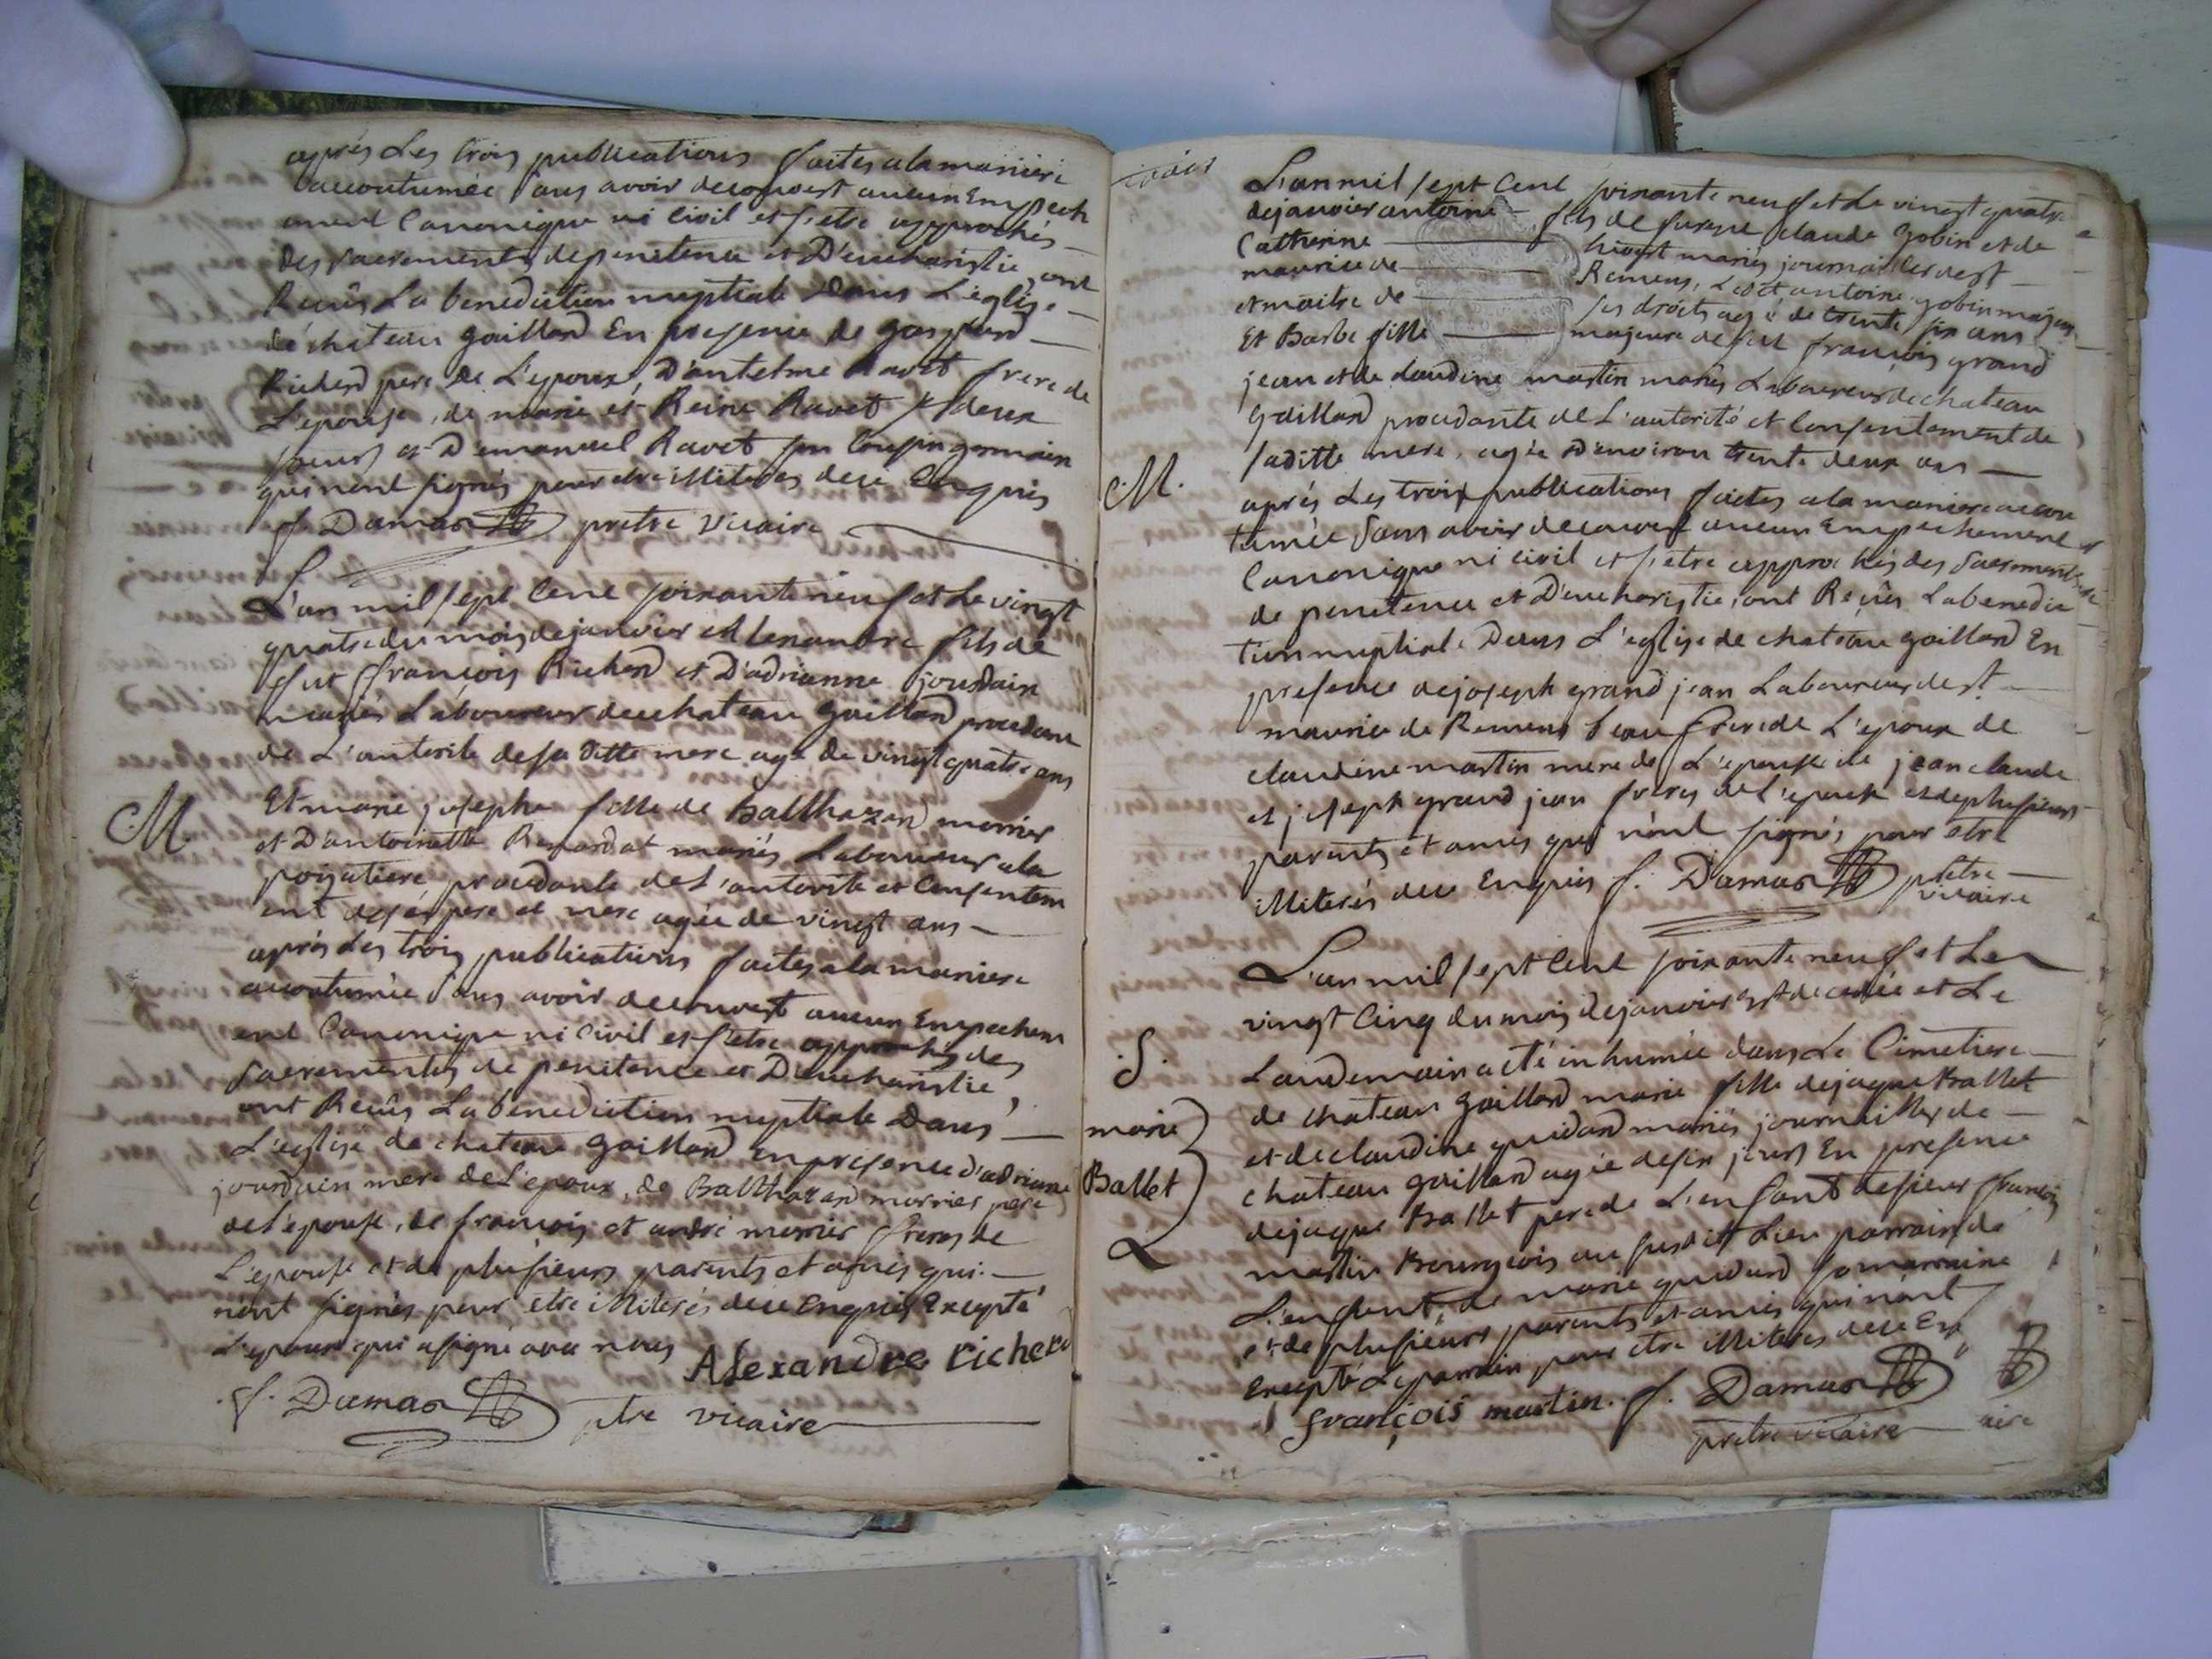 après Les trois publications faites a la maniere
accoutumée sans avoir decouvert aucun Empech
ement Canonique ni Civil et s'etre approchés
des sacrements de penitence et D'eucharistie, ont
Reçûs La benediction nuptiale Dans L'eglise
de chateau gaillard En presence de gaspard
Richerd pere de L'epoux, D'antelme Ravet frere de
L'epouse, de marie et Reine Ravet ses deux
soeurs et D'emanuel Ravet son Cousin germain
qui n'ont signés pour etre illiterés de ce Enquis
f. Damas prêtre vicaire
L'an mil sept Cent soixante neuf et Le vingt
quatre du mois de janvier allexandre fils de
fut françois Richerd et D'adrianne jourdain
mariés Laboureur de chateau gaillard procedant
de L'autorité de sa ditte mere agé de vingt quatre ans
M. Et marie josephe fille de Balthazard morrier
et D'antoinette Renardat mariés Laboureur a la
poizatiere procedante de L'autorité et Consentem
ent de ses pere et mere agée de vingt ans
après Les trois publications faites a la maniere
accoutumée sans avoir decouvert aucun Empechem
ent Canonique ni Civil et s'etre approchés des
sacrements de penitence et D'eucharistie,
ont Reçûs La benediction nuptiale Dans
L'eglise de chateau gaillard En presence d'adrianne
jourdain mere de L'epoux, de Balthazard morrier pere
de L'epouse, de françois et andré morrier freres de
L'epouse et de plusieurs parents et amis qui
n'ont signés pour etre illiterés de ce Enquis Excepté
L'epoux qui a signé avec nous Alexandre richerd
f. Damas ptre vicaire
L'an mil sept Cent soixante neuf et Le vingt quatre
de janvier antoine fils de furent claude gobin et de
Catherine mariés journaillier de st
maurice de Remens, Ledit antoine gobin majeur
et maitre de ses droits agé de trente six ans
Et Barbe fille majeure de fut françois grand
jean et de claudine martin mariés Laboureur de chateau
gaillard procedante de L'autorité et Consentement de
saditte mere, agée D'environ trente deux ans
M. après Les trois publications faites a la maniere accou
tumée sans avoir decouvert aucun Empechement
Canonique ni civil et s'etre approchés des sacrements
de penitence et D'eucharistie, ont Reçûs La benedic
tion nuptiale Dans L'eglise de chateau gaillard En
presence de joseph grand jean Laboureur de st
maurice de Remens beau frere de L'epoux de
claudine martin mere de L'epouse de jean claude
et joseph grand jean freres de L'epouse et de plusieurs
parents et amis qui n'ont signés pour etre
illiterés de ce Enquis f. Damas prêtre
vicaire
L'an mil sept Cent soixante neuf et Le
vingt Cinq du mois de janvier est decedée et Le
S. Landemain a été inhumée dans Le Cimetiere
de chateau gaillard marie fille de jaque Ballet
marie et de claudine guidard mariés journaillier de
Ballet chateau gaillard agée de six jours En presence
de jaque Ballet pere de L'enfant de sieur françois
martin Bourgeois au susdit Lieu parrain de
L'enfent, de marie guidard sa marraine
et de plusieurs parents et amis qui n'ont
Excepté Le parrain pour etre illiterés de ce Enq
françois martin. f. Damas
prêtre vicaire